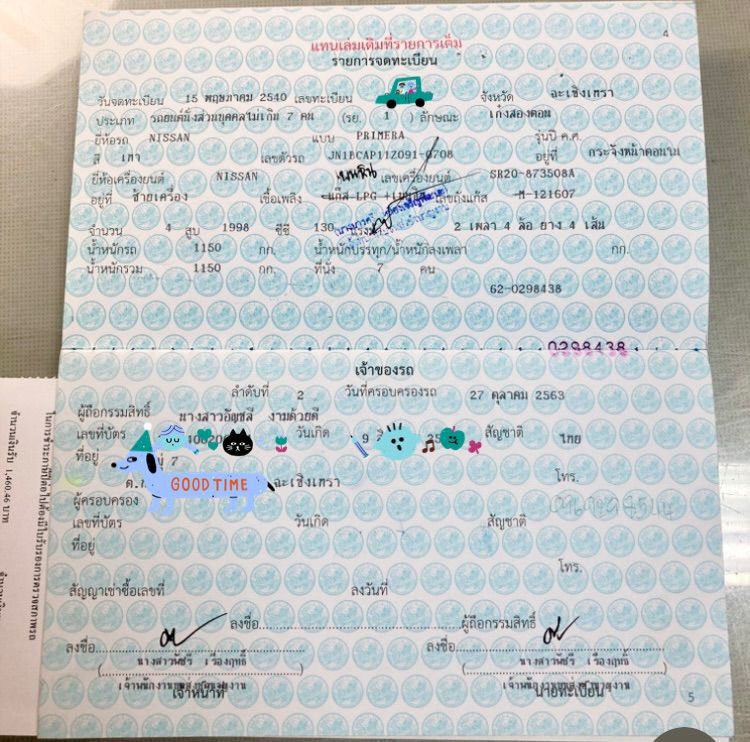 4
แทนเล่มเดิมที่รายการเต็ม
รายการจดทะเบียน
วันจดทะเบียน 15 พฤษภาคม 2540 เลขทะเบียน จังหวัด ฉะเชิงเทรา
ประเภท รถยนต์นั่งส่วนบุคคลไม่เกิน 7 คน (รย. 1 ) ลักษณะ เก๋งสองตอน
ยี่ห้อรถ NISSAN แบบ PRIMERA รุ่นปี ค.ศ.
สี เทา เลขตัวรถ JN1BCAP11Z091-0708 อยู่ที่ กระจังหน้าคอนวน
ยี่ห้อเครื่องยนต์ NISSAN เลขเครื่องยนต์ SR20-873508A
อยู่ที่ ซ้ายเครื่อง เชื้อเพลิง แก๊ส-LPG เลขถังแก๊ส M-121607
จำนวน 4 สูบ 1998 ซีซี 130 แรงม้า 2 เพลา 4 ล้อ ยาง 4 เส้น
น้ำหนักรถ 1150 กก. น้ำหนักบรรทุก/น้ำหนักลงเพลา กก.
น้ำหนักรวม 1150 กก. ที่นั่ง 7 คน
62-0298438
0298438
เจ้าของรถ
ลำดับที่ 2 วันที่ครอบครองรถ 27 ตุลาคม 2563
ผู้ถือกรรมสิทธิ์ นางสาวอัญชลี งามด้วยดี
เลขที่บัตร วันเกิด 9 25 สัญชาติ ไทย
ที่อยู่ 7
GOOD TIME
ฉะเชิงเทรา โทร.
ผู้ครอบครอง
เลขที่บัตร วันเกิด สัญชาติ
ที่อยู่
โทร.
สัญญาเช่าซื้อเลขที่ ลงวันที่
ลงชื่อ ผู้ถือกรรมสิทธิ์
ลงชื่อ ลงชื่อ
นางสาวพัชรี เรืองฤทธิ์ นางสาวพัชรี เรืองฤทธิ์
เจ้าหน้าที่ นายทะเบียน
5
จำนวนเงินรับ 1,460.46 บาท